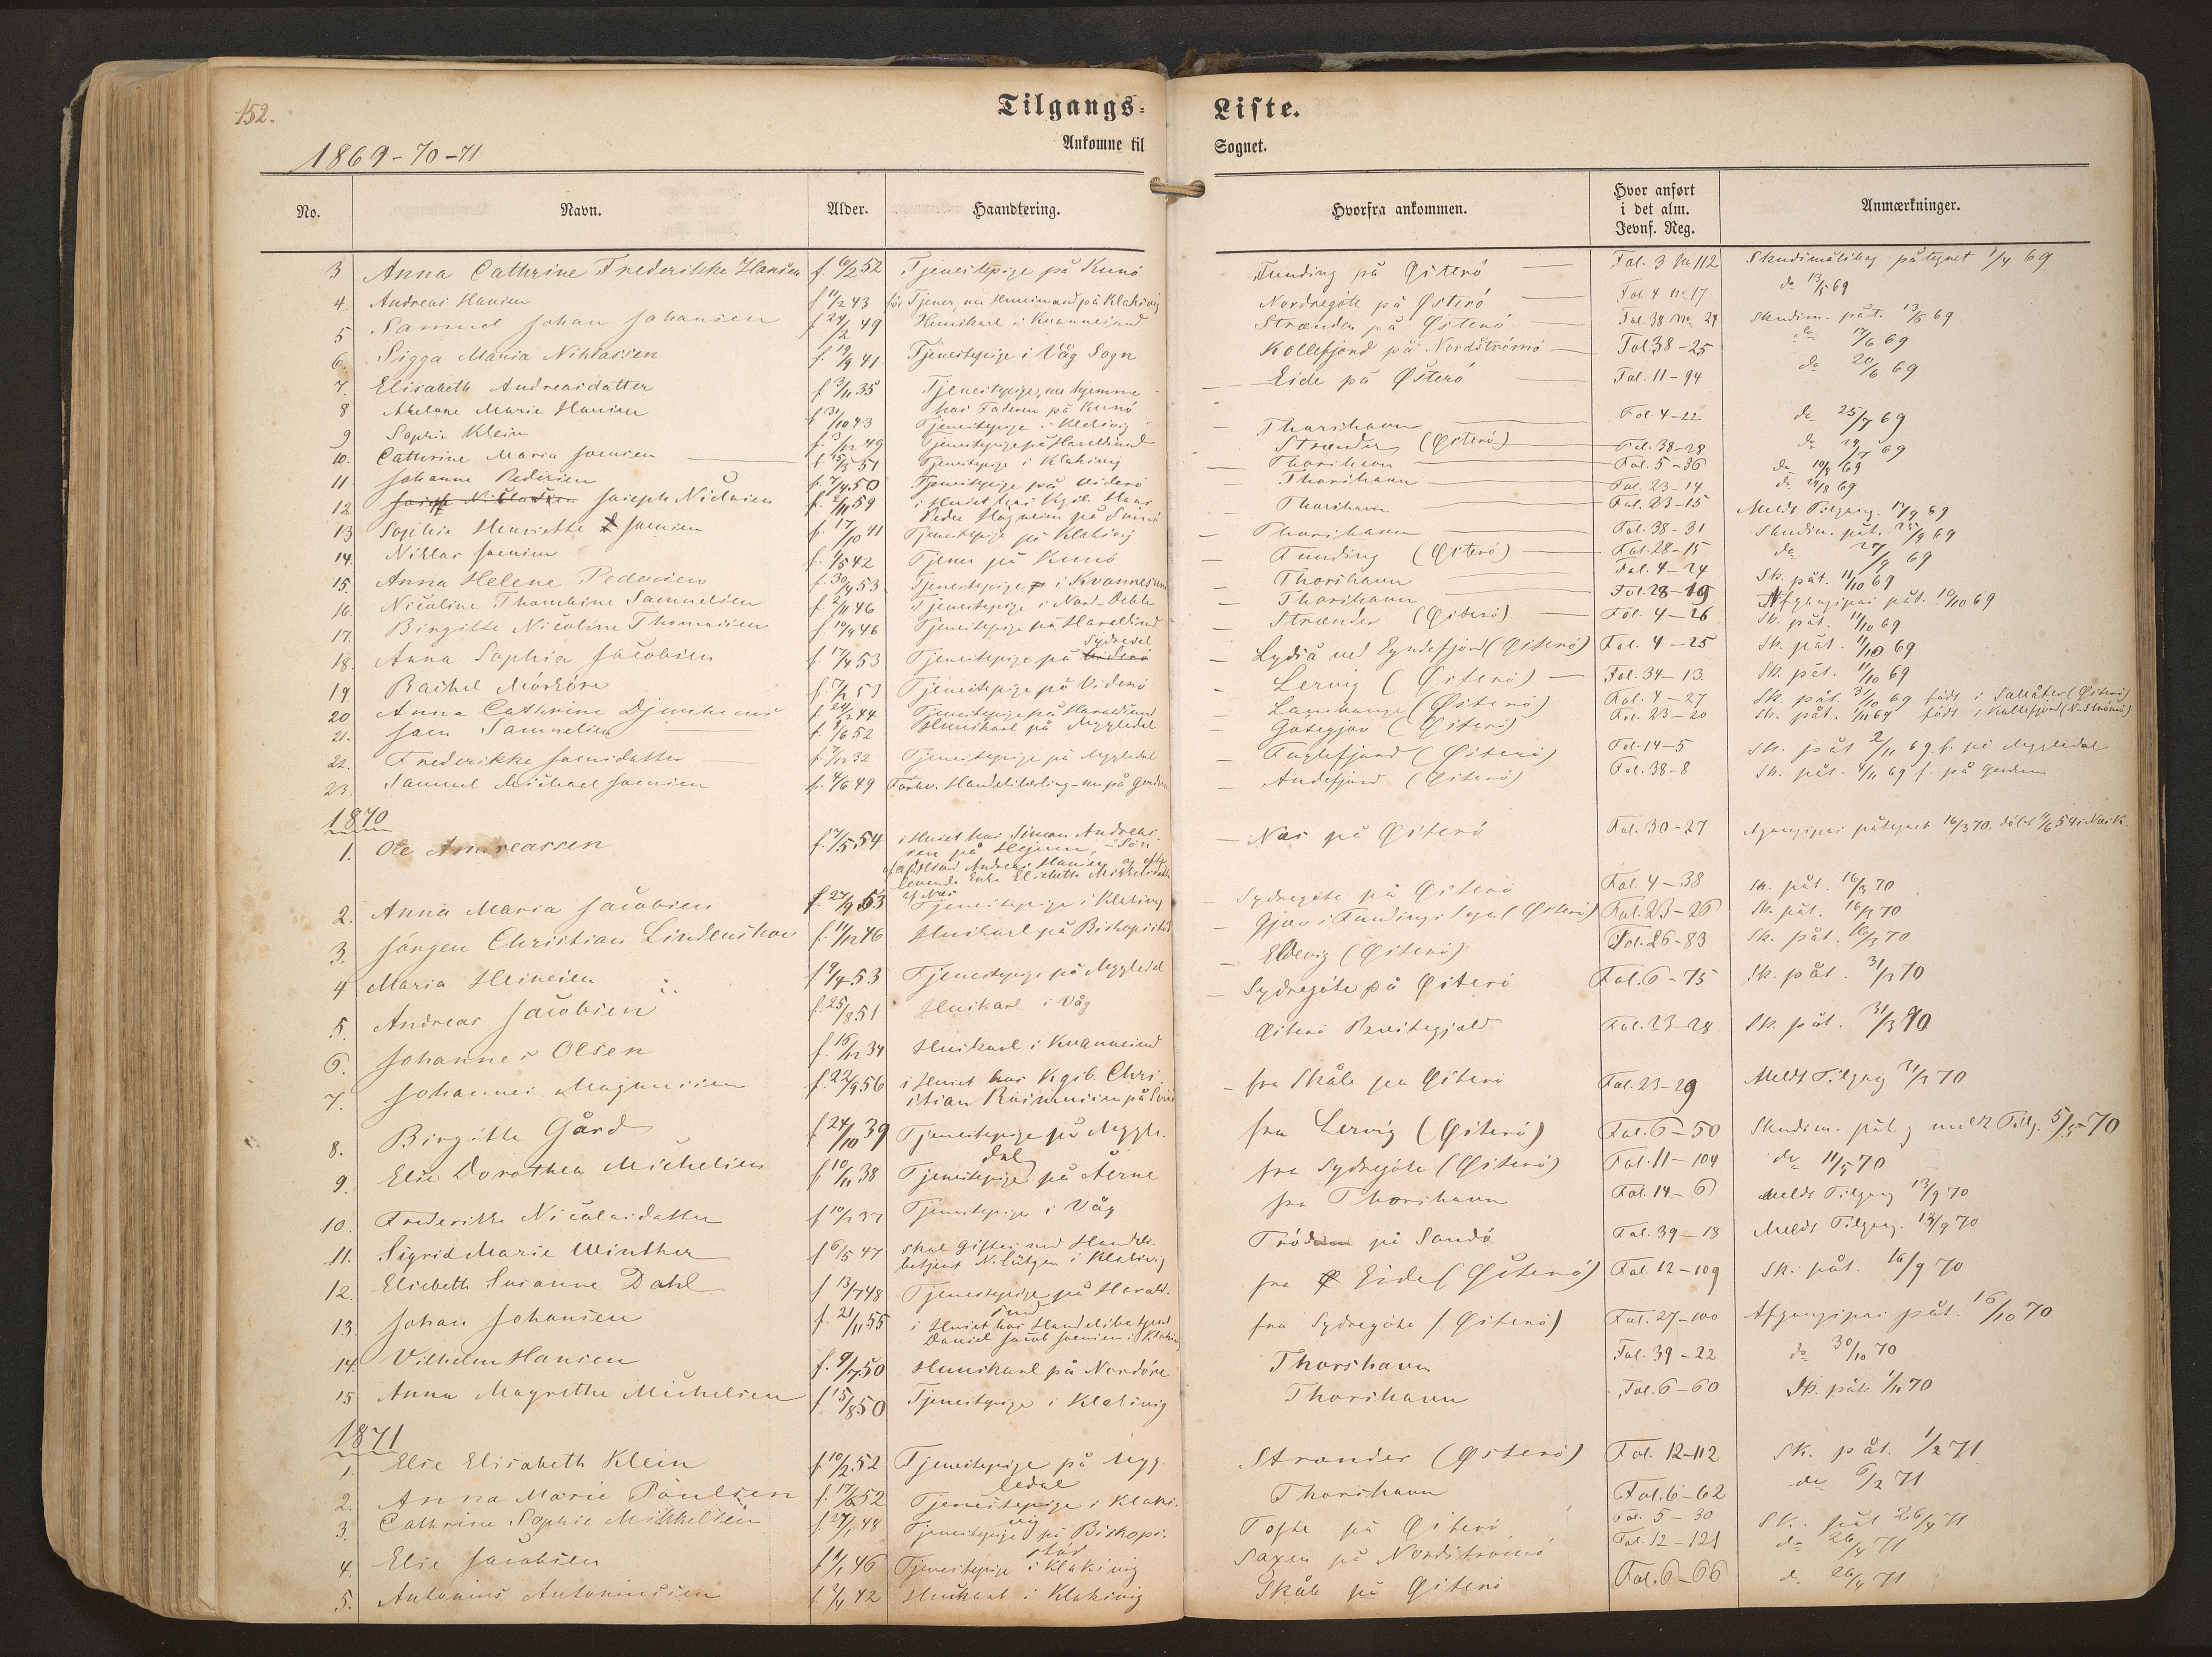 152.
Tilgangs- Liste.
1869-70-71
Ankomne til Sognet.
No. Navn. Alder. Haandtering. Hvorfra ankommen. Hvor anført i det alm. Jevnf. Reg. Anmærkninger.
3 Anna Cathrine Frederikke Hansen f. 6/2 52 Tjenestepige på Kunö Funding på Østerö Fol. 3 No 112 påtegnet 1/4 69
4. Andreas Hansen f 11/2 43 før Tjener, nu Huusmand på Klaksvig Nordregöte på Østerö Fol. 4 No. 17 do 13/5 69
5 Samuel Johan Johansen f 24/2 49 Huuskarl i Kvannesund Strænder på Østerö Fol. 38 No. 24 Skudsm. påt. 13/6 69
6. Sigga Maria Niklassen f. 19/9 41 Tjenestepige i Våg Sogn Kollefjord på Nordströmö Fol. 38-25 do 17/6 69
7. Elisabeth Andreasdatter f 3/11 35 Tjenestepige, nu hjemme hos Faderen på Kunö Eide på Österö Fol. 11-94 do 20/6 69
8 Abelone Marie Hansen f 31/10 43 Tjenestepige i Klaksvig Thorshavn Fol. 4-22 do 25/7 69
9 Sophie Klein f. 3/12 49 Tjenestepige på Haraldsund Strænder (Østerö) Fol. 38-28 do 69
10. Cathrine Maria Joensen f 15/3 51 Tjenestepige i Klaksvig Thorshavn Fol. 5-36 do 10/8 69
11 Johanne Pedersen f. 7/4 50 Tjenestepige på Viderö Thorshavn Fol. 23-14 do 24/8 69
12 Joseph Niclasen f. 2/11 59 i Huset hos Kgsb. Hans Peder Høgnesen på Svinö Thorshavn Fol. 23-15 Meldt Tilgang. 17/9 69
13 Sophie Henriette Joensen f. 17/10 41 Tjenestepige på Klaksvig Thorshavn Fol. 38-31 Skudsm. påt. 25/9 69
14. Niklas Joensen f. 1/5 42 Tjener på Kunö Funding (Østerö) Fol. 28-15 do 27/9 69
15. Anna Helene Pedersen f. 30/4 53 Tjenestepige i Kvannesund Thorshavn Fol. 4-24 Sk. påt. 11/10 69
16. Nicoline Thombine Samuelsen f. 2/11 46 Tjenestepige i Nord-Deble Thorshavn Fol. 28-19 Afgangspas påt. 10/10 69
17. Birgitte Nicoline Thomasen f 10/9 46 Tjenestepige på Haraldsund Strænder (Østerö) Fol. 4-26 Sk. påt. 11/10 69
18. Anna Sophia Jacobsen f. 17/4 53 Tjenestepige på Sydredal Lydså ved Eyndefjord (Østerö) Fol. 4-25 Sk. påt. 11/10 69
19 Rachel Mörköre f. 7/12 53 Tjenestepige på Viderö Lervig (Østerö) Fol. 34-13 Sk. påt. 11/10 69
20 Anna Cathrine Djunhuus f. 24/12 44 Tjenestepige på Haraldsund Lambauge (Østerö) Fol. 4-27 Sk. påt. 31/10 69 født i Sallåter (Østerö)
21. Joen Samuelsen f. 8/6 52 Huuskarl på Myggledal Götegjov (Østerö) Fol. 23-20 Sk. påt. 1/11 69 født i Kollefjord (N-Strömö)
22. Frederikke Joensdatter f. 7/12 32 Tjenestepige på Myggledal Fuglefjord (Østerö) Fol. 14-5 Sk. påt 2/11 69 f. på Myggledal
23. Samuel Michael Joensen f. 4/6 49 Forhv. Handelslærling - nu på Gerden Andefjord (Østerö) Fol. 38-8 Sk. påt. 4/11 69 f. på Gerden
1870
1. Ole Andreassen f. 7/5 54 i Huset hos Simon Andreassen på Skejnum, - Søn af afd. Huusmd. Andreas Hansen og efterlevende Enke Elsebeth Mikkelsdatter af Næs Næs på Østerö Fol. 30-27 Afgangspas påtegnet 16/3 70, døbt 7/6 54 i Næs K.
2. Anna Maria Jacobsen f. 27/9 53 Tjenestepige i Klaksvig Sydregöte på Østerö Fol. 4-38 Sk. påt. 16/3 70
3. Jörgen Christian Lindenskov f. 11/12 46 Huuskarl på Bishopsstød Gjov i Fundings Sogn (Østerö) Fol. 23-26 Sk. påt. 16/3 70
4 Maria Heinesen f 9/4 53 Tjenestepige på Myggledal Eldevig (Østerö) Fol. 26-83 Sk. påt. 16/3 70
5. Andreas Jacobsen f. 25/8 51 Huskarl i Våg Sydregöte på Østerö Fol. 6-75 Sk. påt. 31/3 70
6. Johannes Olsen f. 16/12 34 Huskarl i Kvannesund Østerö Præstegjæld Fol. 23-28 Sk. påt. 31/3 70
7. Johannes Magnussen f. 22/9 56 i Huset hos Kgsb. Christian Rasmussen på Svinö fra Skåle på Østerö Fol. 23-29 Meldt Tilgang 31/3 70
8. Birgitte Gård f 24/10 39 Tjenestepige på Myggledal fra Lervig (Østerö) Fol. 6-50 Skudsm. påt. og meldt Tilg. 5/5 70
9. Else Dorothea Michelsen f 10/11 38 Tjenestepige på Åerne fra Sydregöte (Østerö) Fol. 11-104 do 11/5 70
10. Frederikke Nicolasdatter f 10/12 37 Tjenestepige i Våg fra Thorshavn Fol. 14-6 Meldt Tilgang 13/9 70
11. Sigrid Marie Winther f 6/5 47 skal giftes med Handelsbetjent N. Lützen i Klaksvig Tröd på Sandö Fol. 39-18 Meldt Tilgang. 13/9 70
12. Elsebeth Susanne Dahl f 13/7 48 Tjenestepige på Haraldsund fra Eide (Østerö) Fol. 12-109 Sk. påt. 16/9 70
13. Johan Johansen f. 21/11 55 i Huset hos Handelsbetjent Daniel Jacob Joensen i Klaksvig fra Sydregöte (Østerö) Fol. 27-100 Afgangspas påt. 16/10 70
14. Vilhelm Hansen f. 9/7 50 Huuskarl på Nordöre Thorshavn Fol. 39-22 do 30/10 70
15 Anna Magrethe Michelsen f 15/8 50 Tjenestepige i Klaksvig Thorshavn Fol. 6-60 Sk. påt. 1/11 70
1871
1. Else Elisabeth Klein f. 10/2 52 Tjenestepige på Myggledal Strænder (Østerö) Fol. 12-112 Sk. påt. 1/2 71
2. Anna Marie Poulsen f. 17/6 52 Tjenestepige i Klaksvig Thorshavn Fol. 6-62 do 6/2 71
3. Cathrine Sophie Mikkelsen f. 27/1 48 Tjenestepige på Bishopsstød Tofte på Østerö Fol. 5-30 Sk. påt 26/4 71
4. Else Jacobsen f 9/1 46 Tjenestepige i Klaksvig Saxen på Nordströmö Fol. 12-121 do 26/4 71
5. Antonius Antoniussen f 2/4 42 Huuskarl i Klaksvig Skåle på Østerö Fol. 6-66 do 26/4 71